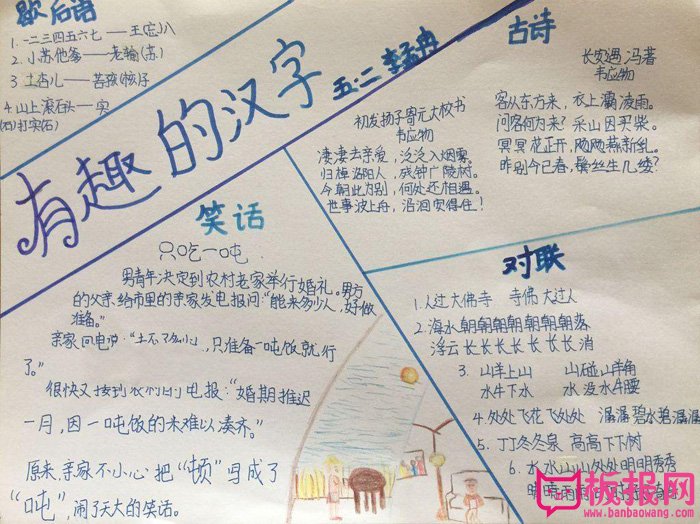 歇后语
1.一二三四五六七——王(忘)八
2.小苏他爹——老输(苏)
3.土杏儿——苦孩(核)仔
4山上滚石头——实
(石)打实(石)
有趣的汉字
五.二
初发扬子寄元大校书
韦应物
凄凄去亲爱,泛泛入烟雾。
归棹洛阳人,残钟广陵树。
今朝此为别,何处还相遇。
世事波上舟,沿洄安得住!
古诗
长安遇冯著
韦应物
客从东方来,衣上灞凌雨。
问客何为来?采山因买柴。
冥冥花正开,飏飏燕新乳。
昨别今已春,鬓丝生几缕?
笑话
只吃一吨
男青年决定到农村老家举行婚礼。男方
的父亲给市里的亲家发电报问:“能来多少人,好做
准备。”
亲家回电说:“,只准备一吨饭就行
了。”
很快又接到农村的电报:“婚期推迟
一月,因一吨饭的米难以凑齐。”
原来,亲家不小心把“顿”写成了
“吨”,闹了天大的笑话。
对联
1.人过大佛寺 寺佛大过人
2.海水朝朝朝朝朝朝朝落
浮云长长长长长长长消
3.山羊上山 山碰山羊角
水牛下水 水没水牛腰
4.处处飞花飞处处 潺潺碧水碧潺潺
5.丁丁冬冬泉 高高下下树
6.水水山山处处明明秀秀
晴晴雨雨
板报网
www.banbaowang.com